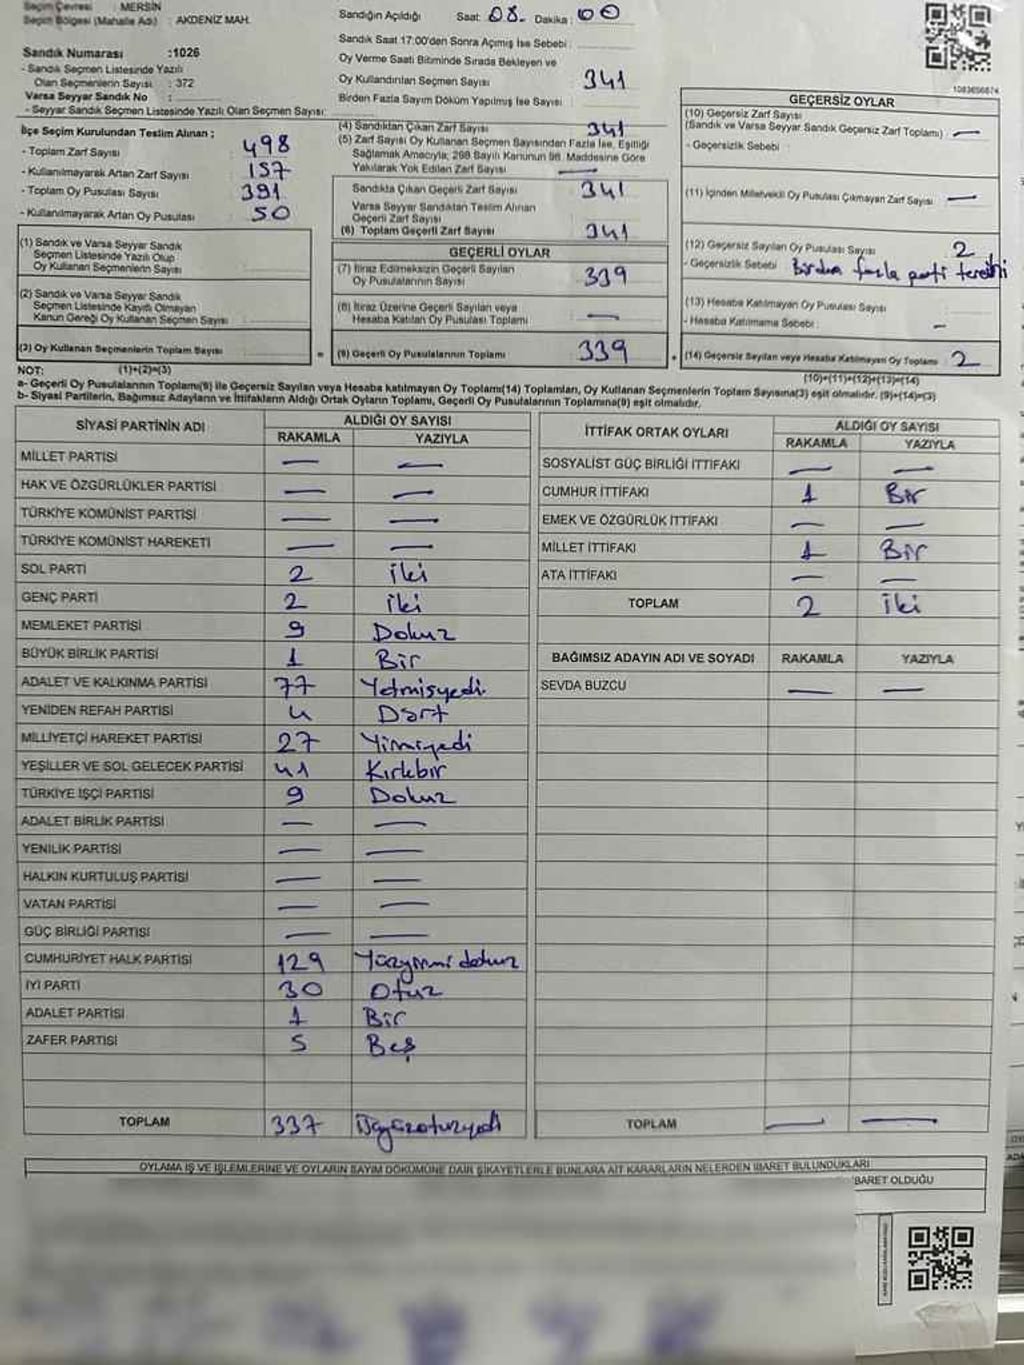 Seçim Çevresi : MERSİN
Seçim Bölgesi (Mahalle Adı) : AKDENİZ MAH.
Sandık Numarası :1026
- Sandık Seçmen Listesinde Yazılı
Olan Seçmenlerin Sayısı : 372
Varsa Seyyar Sandık No :
- Seyyar Sandık Seçmen Listesinde Yazılı Olan Seçmen Sayısı:
İlçe Seçim Kurulundan Teslim Alınan ;
- Toplam Zarf Sayısı 498
- Kullanılmayarak Artan Zarf Sayısı 157
- Toplam Oy Pusulası Sayısı 391
- Kullanılmayarak Artan Oy Pusulası 50
(1) Sandık ve Varsa Seyyar Sandık
Seçmen Listesinde Yazılı Olup
Oy Kullanan Seçmenlerin Sayısı
(2) Sandık ve Varsa Seyyar Sandık
Seçmen Listesinde Kayıtlı Olmayan
Kanun Gereği Oy Kullanan Seçmen Sayısı
(3) Oy Kullanan Seçmenlerin Toplam Sayısı
Sandığın Açıldığı Saat: 08. Dakika : 00
Sandık Saat 17:00'den Sonra Açılmış İse Sebebi :
Oy Verme Saati Bitiminde Sırada Bekleyen ve
Oy Kullandırılan Seçmen Sayısı 341
Birden Fazla Sayım Döküm Yapılmış İse Sayısı
(4) Sandıktan Çıkan Zarf Sayısı 341
(5) Zarf Sayısı Oy Kullanan Seçmen Sayısından Fazla İse, Eşitliği
Sağlamak Amacıyla; 298 Sayılı Kanunun 98. Maddesine Göre
Yakılarak Yok Edilen Zarf Sayısı —
Sandıkta Çıkan Geçerli Zarf Sayısı 341
Varsa Seyyar Sandıktan Teslim Alınan
Geçerli Zarf Sayısı
(6) Toplam Geçerli Zarf Sayısı 341
GEÇERLİ OYLAR
(7) İtiraz Edilmeksizin Geçerli Sayılan
Oy Pusulalarının Sayısı 339
(8) İtiraz Üzerine Geçerli Sayılan veya
Hesaba Katılan Oy Pusulası Toplamı —
= (9) Geçerli Oy Pusulalarının Toplamı 339
1083656874
GEÇERSİZ OYLAR
(10) Geçersiz Zarf Sayısı
(Sandık ve Varsa Seyyar Sandık Geçersiz Zarf Toplamı) —
- Geçersizlik Sebebi :
(11) İçinden Milletvekili Oy Pusulası Çıkmayan Zarf Sayısı —
(12) Geçersiz Sayılan Oy Pusulası Sayısı 2
- Geçersizlik Sebebi Birden fazla parti tercihi
(13) Hesaba Katılmayan Oy Pusulası Sayısı
- Hesaba Katılmama Sebebi : —
+ (14) Geçersiz Sayılan veya Hesaba Katılmayan Oy Toplamı 2
NOT: (1)+(2)=(3) (10)+(11)+(12)+(13)=(14)
a- Geçerli Oy Pusulalarının Toplamı(9) ile Geçersiz Sayılan veya Hesaba katılmayan Oy Toplamı(14) Toplamları, Oy Kullanan Seçmenlerin Toplam Sayısına(3) eşit olmalıdır. (9)+(14)=(3)
b- Siyasi Partilerin, Bağımsız Adayların ve İttifakların Aldığı Ortak Oyların Toplamı, Geçerli Oy Pusulalarının Toplamına(9) eşit olmalıdır.
SİYASİ PARTİNİN ADI ALDIĞI OY SAYISI
RAKAMLA YAZIYLA
MİLLET PARTİSİ — —
HAK VE ÖZGÜRLÜKLER PARTİSİ — —
TÜRKİYE KOMÜNİST PARTİSİ — —
TÜRKİYE KOMÜNİST HAREKETİ — —
SOL PARTİ 2 iki
GENÇ PARTİ 2 iki
MEMLEKET PARTİSİ 9 Dokuz
BÜYÜK BİRLİK PARTİSİ 1 Bir
ADALET VE KALKINMA PARTİSİ 77 Yetmişyedi
YENİDEN REFAH PARTİSİ 4 Dört
MİLLİYETÇİ HAREKET PARTİSİ 27 Yirmiyedi
YEŞİLLER VE SOL GELECEK PARTİSİ 41 Kırkbir
TÜRKİYE İŞÇİ PARTİSİ 9 Dokuz
ADALET BİRLİK PARTİSİ — —
YENİLİK PARTİSİ — —
HALKIN KURTULUŞ PARTİSİ — —
VATAN PARTİSİ — —
GÜÇ BİRLİĞİ PARTİSİ — —
CUMHURİYET HALK PARTİSİ 129 Yüzyirmi dokuz
İYİ PARTİ 30 Otuz
ADALET PARTİSİ 1 Bir
ZAFER PARTİSİ 5 Beş
TOPLAM 337 Üçyüzotuzyedi
İTTİFAK ORTAK OYLARI ALDIĞI OY SAYISI
RAKAMLA YAZIYLA
SOSYALİST GÜÇ BİRLİĞİ İTTİFAKI — —
CUMHUR İTTİFAKI 1 Bir
EMEK VE ÖZGÜRLÜK İTTİFAKI — —
MİLLET İTTİFAKI 1 Bir
ATA İTTİFAKI — —
TOPLAM 2 İki
BAĞIMSIZ ADAYIN ADI VE SOYADI RAKAMLA YAZIYLA
SEVDA BUZCU — —
TOPLAM — —
OYLAMA İŞ VE İŞLEMLERİNE VE OYLARIN SAYIM DÖKÜMÜNE DAİR ŞİKAYETLERLE BUNLARA AİT KARARLARIN NELERDEN İBARET BULUNDUKLARI
BARET OLDUĞU